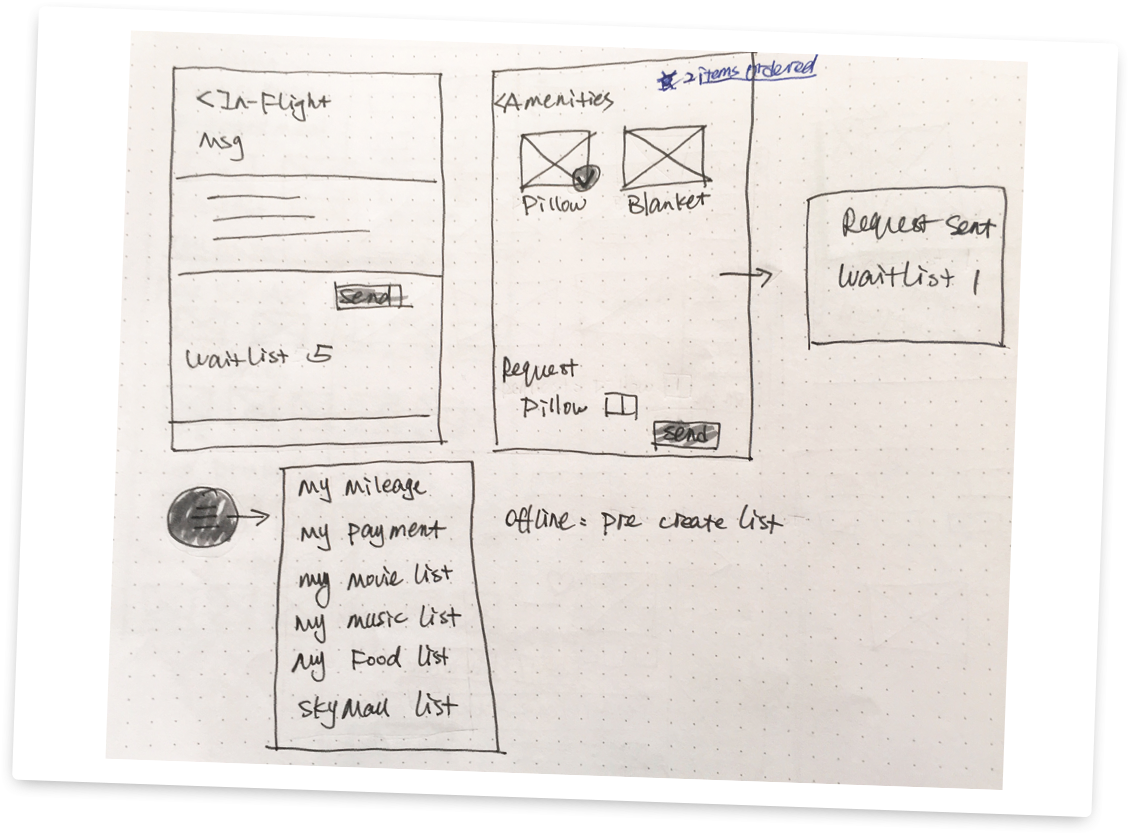 <In-Flight
Msg
send
waitlist 5
2 items ordered
<Amenities
Pillow
Blanket
Request
Pillow 1
send
Request sent
waitlist 1
my mileage
my payment
my movie list
my music list
my Food list
skyMall list
offline: pre create list